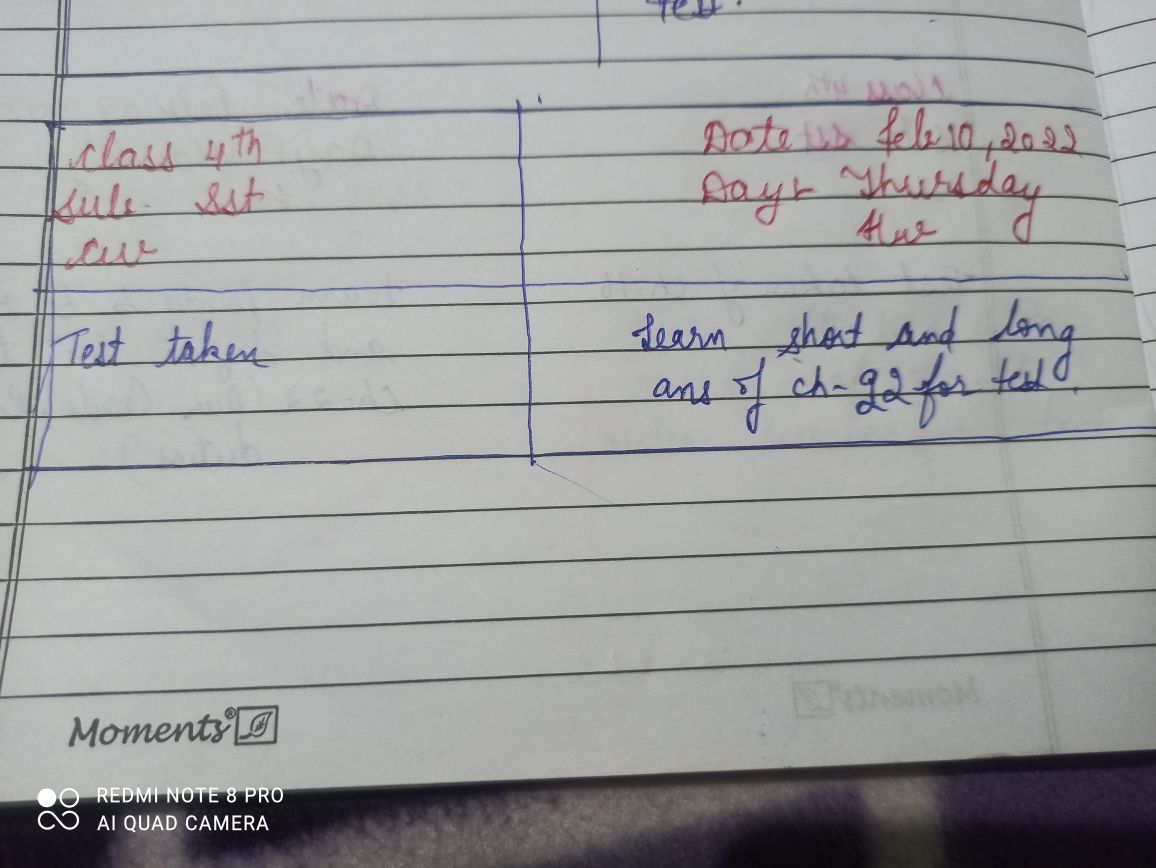 Test.
Class 4th
Sub- Sst
CW
Date feb 10, 2022
Day- Thursday
Hw
Test taken
Learn short and long
ans of ch- 22 for test.
Moments®
REDMI NOTE 8 PRO
AI QUAD CAMERA